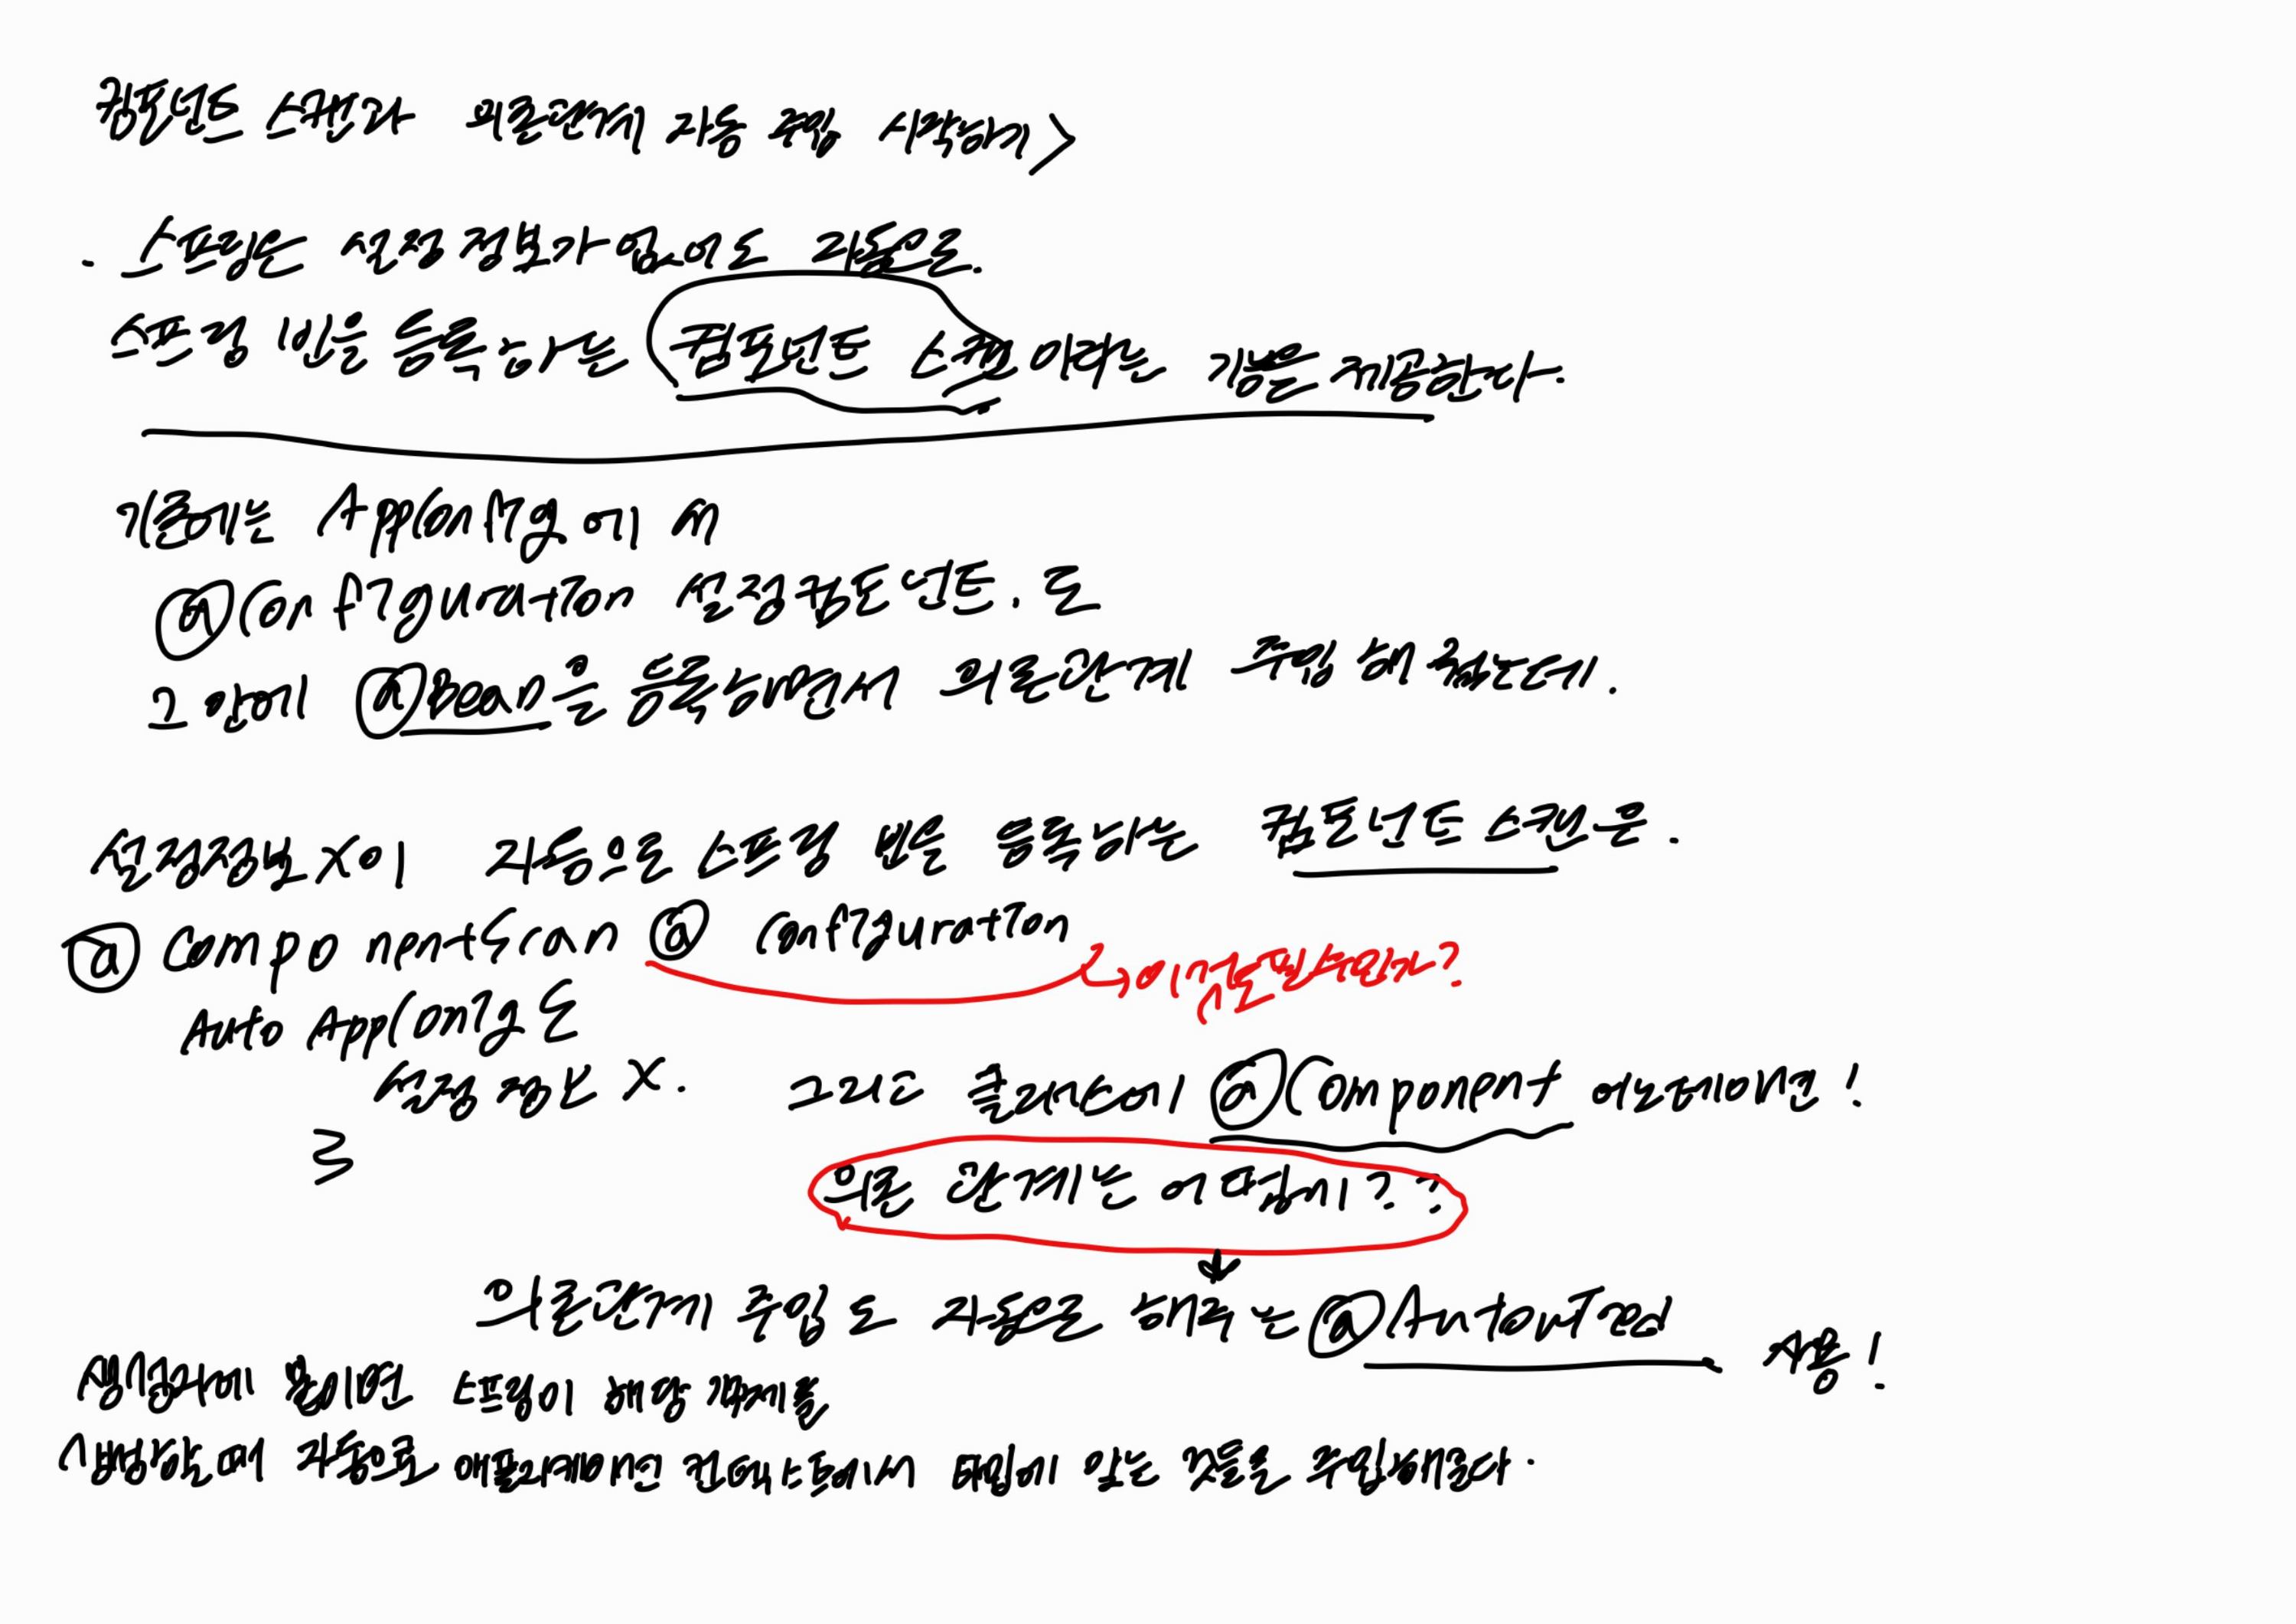 컴포넌트 스캔과 의존관계 자동 주입 시작하기>
. 스프링은 설정 정보가 없어도 자동으로.
스프링 빈을 등록하는 컴포넌트 스캔 이라는 기능을 제공한다.
기존에는 AppConfig에서
@Configuration 설정컴포넌트. 로
그 안에 @Bean을 등록하면서 의존관계 주입 해 줬는데.
설정정보X이 자동으로 스프링 빈을 등록하는 컴포넌트 스캔은.
@ComponentScan @Configuration
↳이것도 필수인가?
Auto AppConfig는
설정 정보 X.
그리고 클래스에 @Component 어노테이션!
의존 관계는 어떡하니??
의존관계 주입도 자동으로 해주는 @Autowired 사용!
생성자에 붙이면 스프링이 해당 객체를
생성할 때 자동으로 애플리케이션 컨텍스트에서 타입에 맞는 것들을 주입해준다.